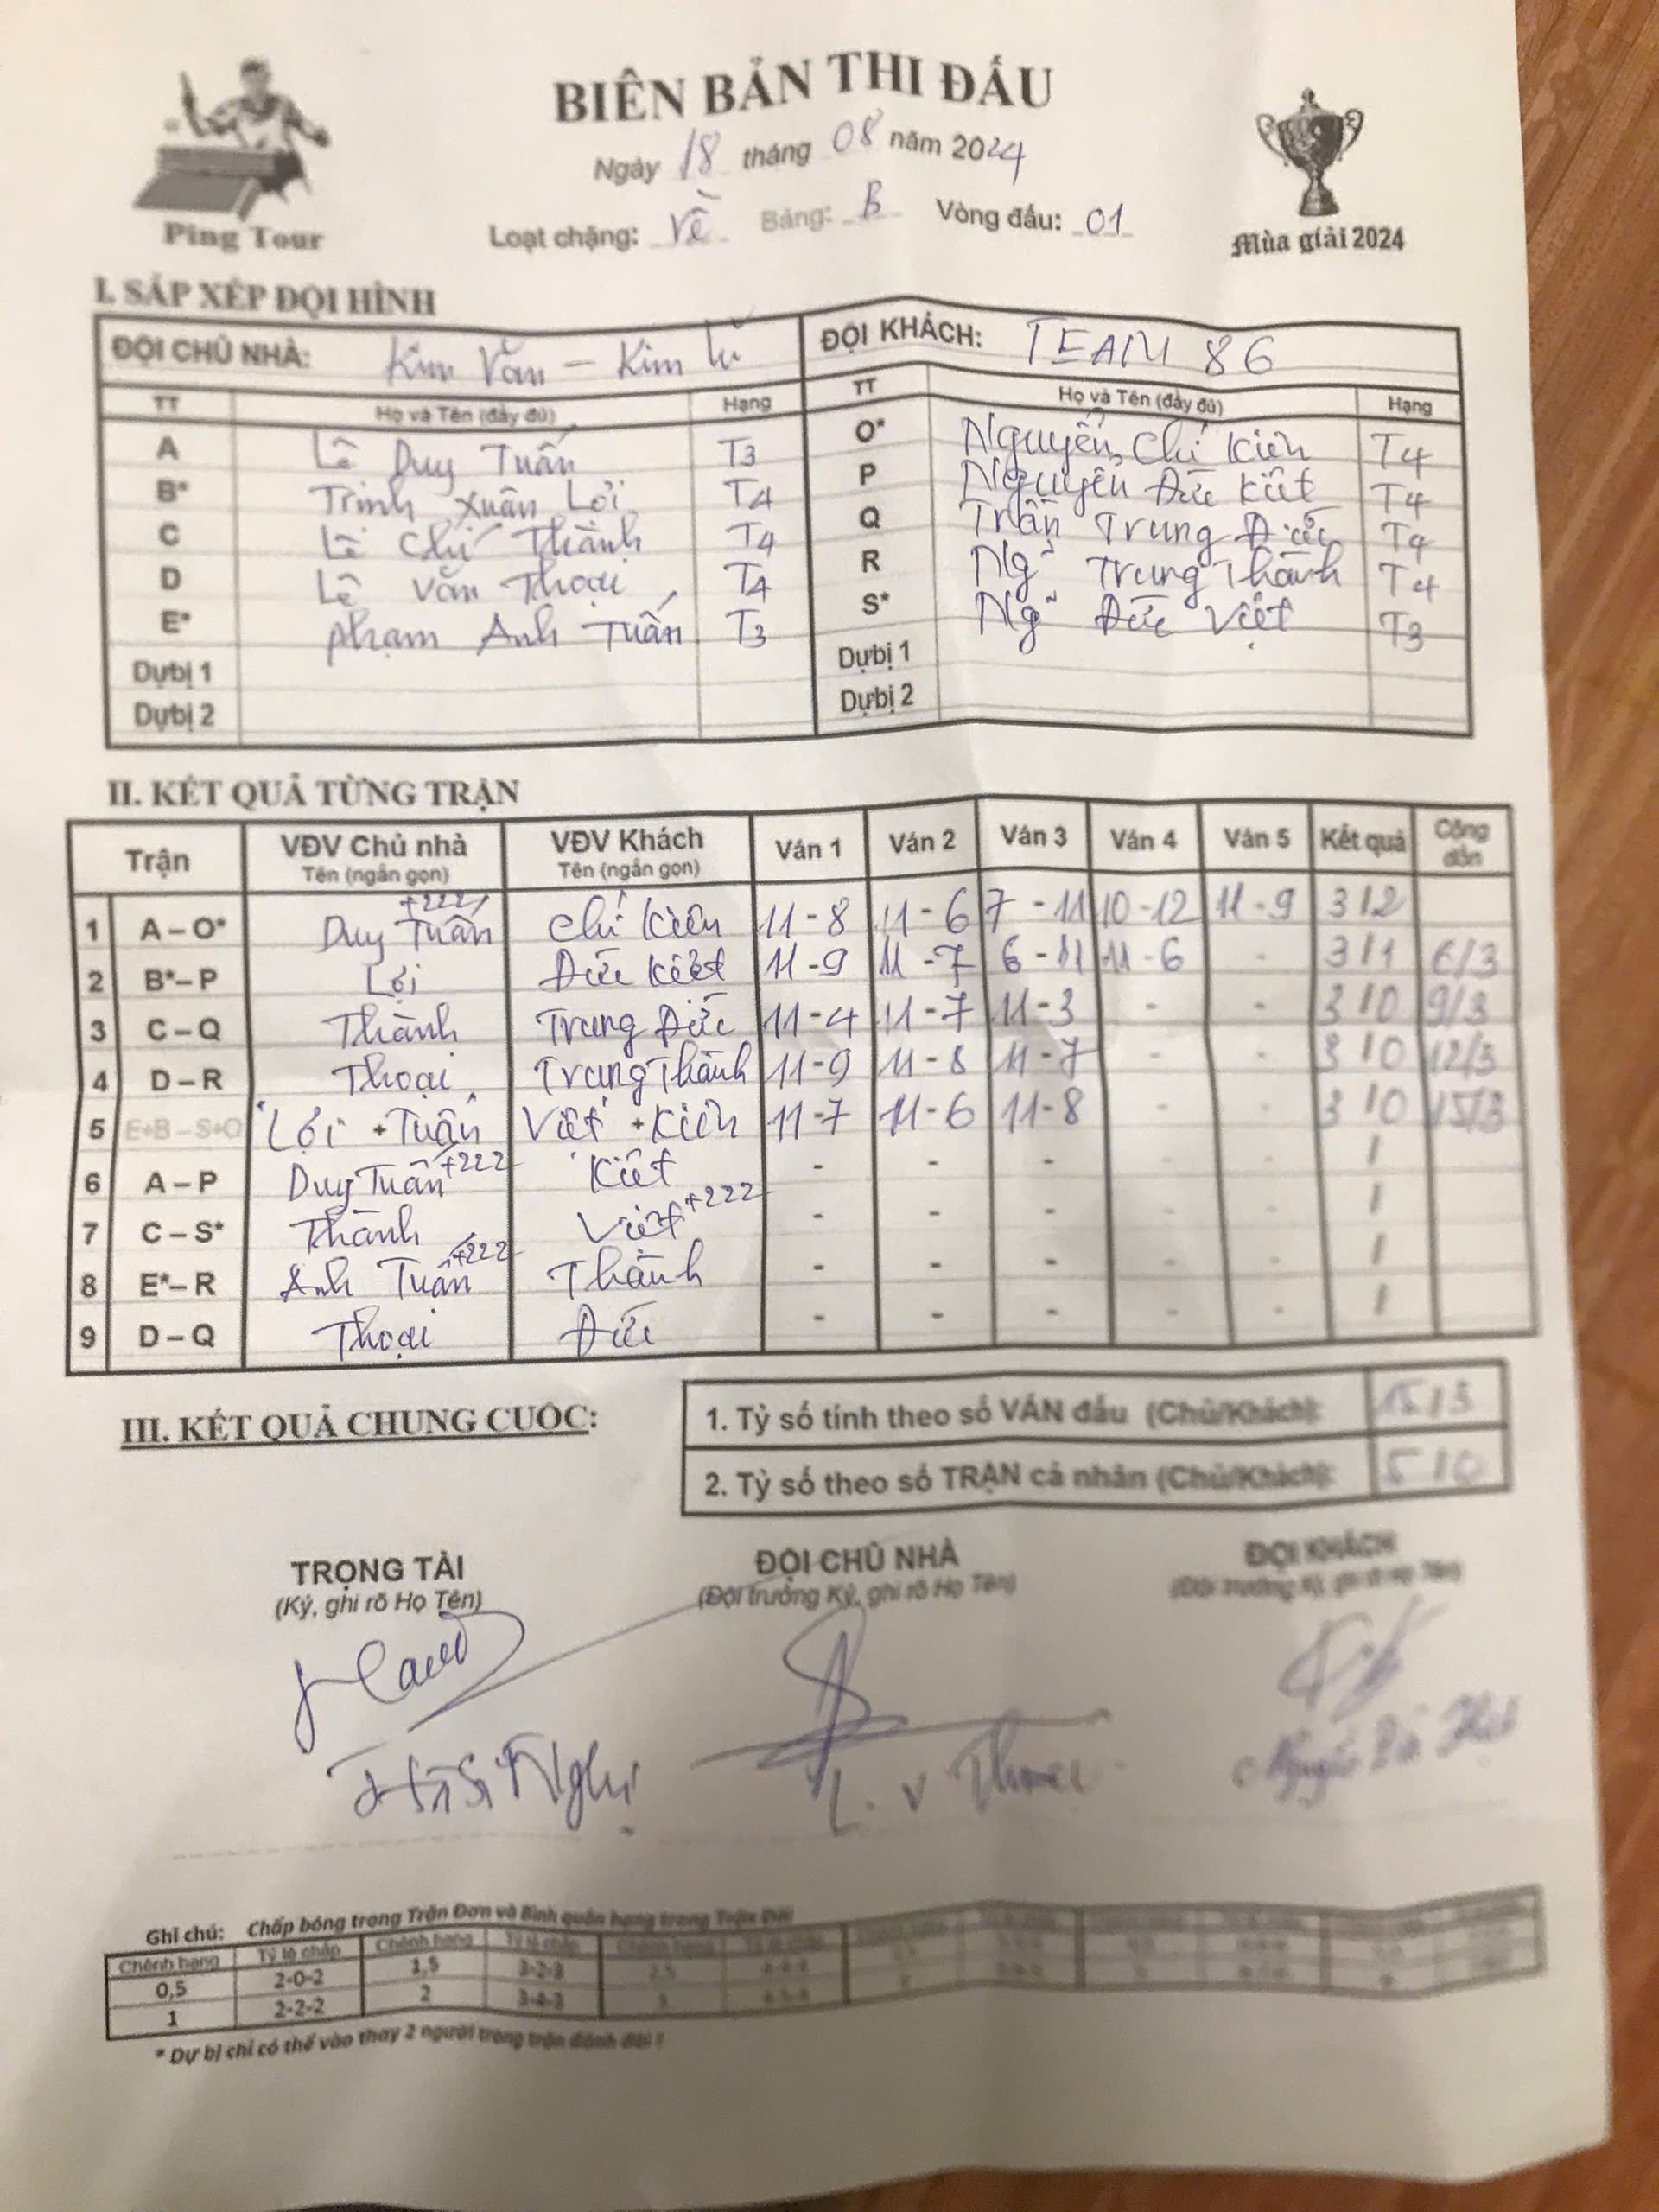 BIÊN BẢN THI ĐẤU
Ngày 18 tháng 08 năm 2024
Loạt chặng: Về Bảng: B Vòng đấu: 01
Ping Tour
Mùa giải 2024
I. SẮP XẾP ĐỘI HÌNH
ĐỘI CHỦ NHÀ: Kim Văn - Kim Lũ ĐỘI KHÁCH: TEAM 86
TT Họ và Tên (đầy đủ) Hạng TT Họ và Tên (đầy đủ) Hạng
A Lê Duy Tuấn T3 O* Nguyễn Chí Kiên T4
B* Trịnh Xuân Lợi T4 P Nguyễn Đức Kiệt T4
C Lê Chí Thành T4 Q Trần Trung Đức T4
D Lê Văn Thoại T4 R Ng~ Trung Thành T4
E* Phạm Anh Tuấn T3 S* Ng~ Đức Việt T3
Dựbị 1 Dựbị 1
Dựbị 2 Dựbị 2
II. KẾT QUẢ TỪNG TRẬN
Trận VĐV Chủ nhà Tên (ngắn gọn) VĐV Khách Tên (ngắn gọn) Ván 1 Ván 2 Ván 3 Ván 4 Ván 5 Kết quả Cộng dồn
1 A – O* Duy Tuấn +222 Chí Kiên 11-8 11-6 7-11 10-12 11-9 3/2
2 B*– P Lợi Đức Kiệt 11-9 11-7 6-11 11-6 - 3/1 6/3
3 C – Q Thành Trung Đức 11-4 11-7 11-3 - - 3/0 9/3
4 D – R Thoại Trung Thành 11-9 11-8 11-7 - - 3/0 12/3
5 E+B – S+O Lợi + Tuấn Việt + Kiên 11-7 11-6 11-8 - - 3/0 15/3
6 A – P Duy Tuấn +222 Kiệt - - - - - /
7 C – S* Thành Việt +222 - - - - - /
8 E*– R Anh Tuấn +222 Thành - - - - - /
9 D – Q Thoại Đức - - - - - /
III. KẾT QUẢ CHUNG CUỘC:
1. Tỷ số tính theo số VÁN đấu (Chủ/Khách): 15/3
2. Tỷ số theo số TRẬN cá nhân (Chủ/Khách): 5/0
TRỌNG TÀI ĐỘI CHỦ NHÀ ĐỘI KHÁCH
(Ký, ghi rõ Họ Tên) (Đội trưởng Ký, ghi rõ Họ Tên) (Đội trưởng Ký, ghi rõ Họ Tên)
Nghị L. V Thoại Nguyễn
Ghi chú: Chấp bóng trong Trận Đơn và Bình quân hạng trong Trận Đôi
Chênh hạng Tỷ lệ chấp Chênh hạng Tỷ lệ chấp Chênh hạng Tỷ lệ chấp
0,5 2-0-2 1,5 3-2-3
1 2-2-2 2 3-4-3
* Dự bị chỉ có thể vào thay 2 người trong trận đánh đôi !